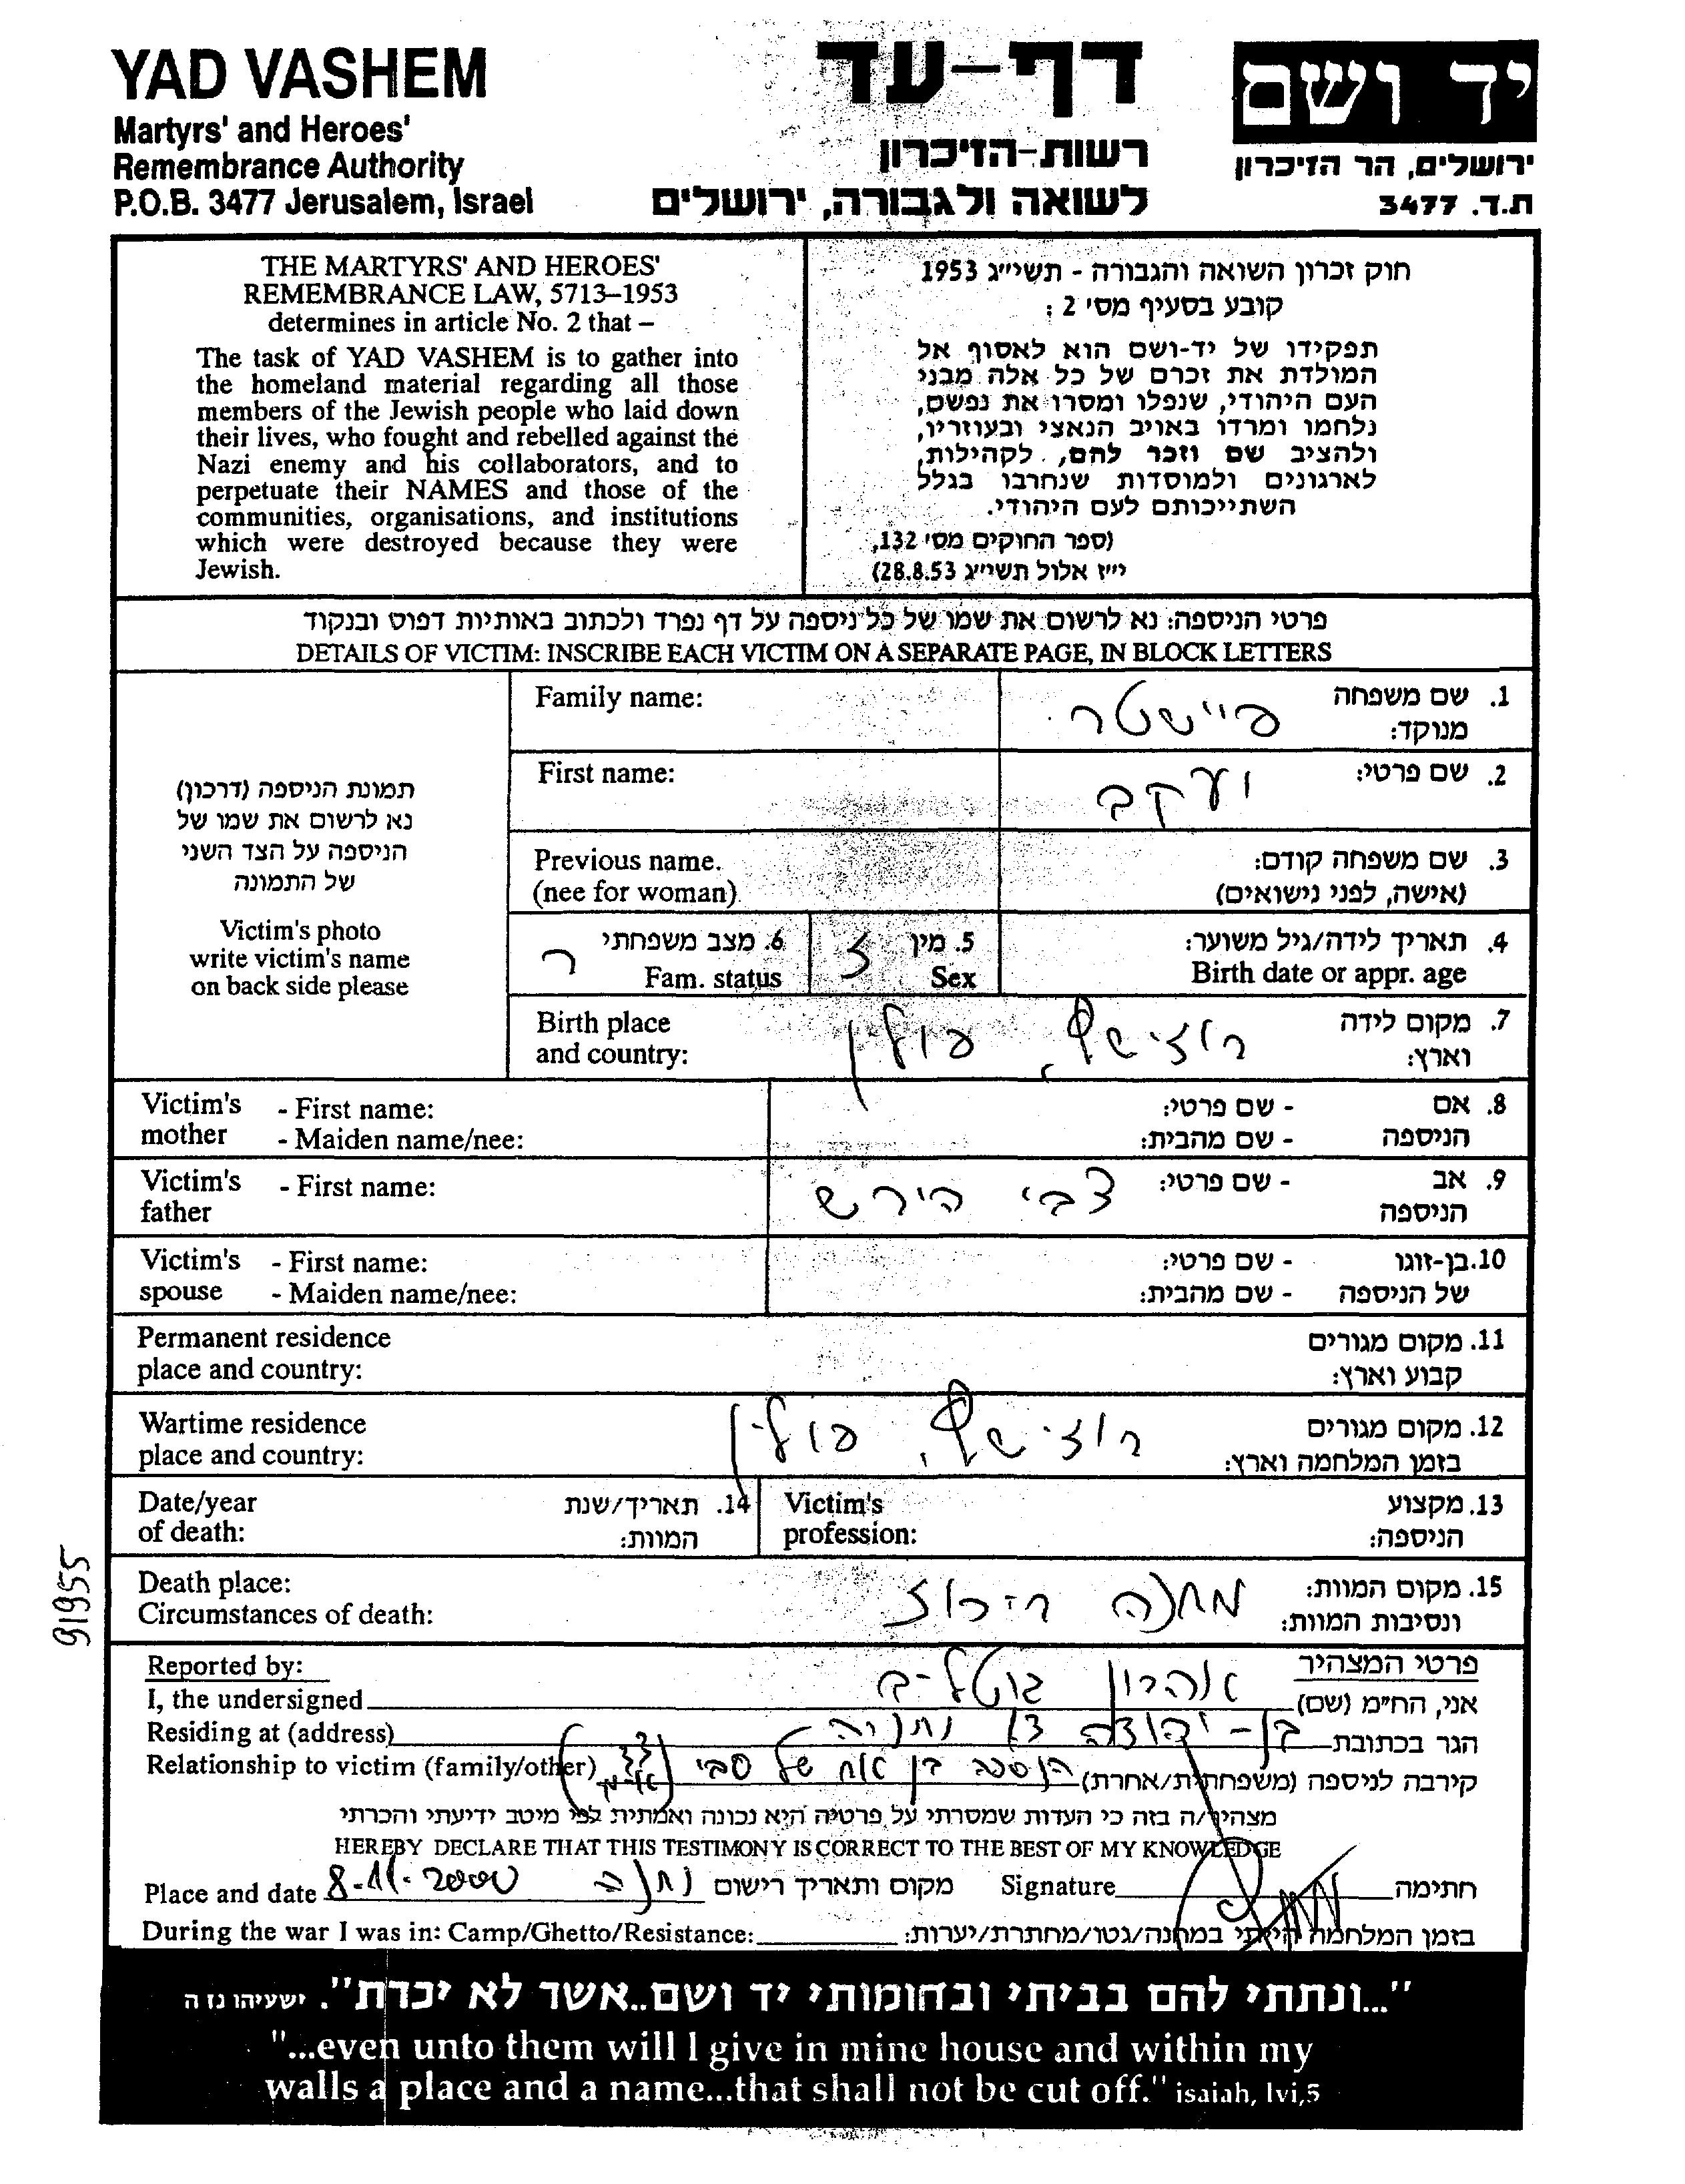 YAD VASHEM
Martyrs' and Heroes'
Remembrance Authority
P.O.B. 3477 Jerusalem, Israel
דף-עד
רשות-הזיכרון
לשואה ולגבורה, ירושלים
יד ושם
ירושלים, הר הזיכרון
ת.ד. 3477
THE MARTYRS' AND HEROES'
REMEMBRANCE LAW, 5713–1953
determines in article No. 2 that –
The task of YAD VASHEM is to gather into
the homeland material regarding all those
members of the Jewish people who laid down
their lives, who fought and rebelled against the
Nazi enemy and his collaborators, and to
perpetuate their NAMES and those of the
communities, organisations, and institutions
which were destroyed because they were
Jewish.
חוק זכרון השואה והגבורה - תשי״ג 1953
קובע בסעיף מס׳ 2 :
תפקידו של יד-ושם הוא לאסוף אל
המולדת את זכרם של כל אלה מבני
העם היהודי, שנפלו ומסרו את נפשם,
נלחמו ומרדו באויב הנאצי ובעוזריו,
ולהציב שם וזכר להם, לקהילות,
לארגונים ולמוסדות שנחרבו בגלל
השתייכותם לעם היהודי.
(ספר החוקים מס׳ 132,
י״ז אלול תשי״ג 28.8.53)
פרטי הניספה: נא לרשום את שמו של כל ניספה על דף נפרד ולכתוב באותיות דפוס ובנקוד
DETAILS OF VICTIM: INSCRIBE EACH VICTIM ON A SEPARATE PAGE, IN BLOCK LETTERS
תמונת הניספה (דרכון)
נא לרשום את שמו של
הניספה על הצד השני
של התמונה
Victim's photo
write victim's name
on back side please
1. שם משפחה
מנוקד: פיישטר
Family name:
2. שם פרטי: יעקב
First name:
3. שם משפחה קודם:
(אישה, לפני נישואים)
Previous name.
(nee for woman)
4. תאריך לידה/גיל משוער:
Birth date or appr. age
5. מין ז
Sex
6. מצב משפחתי ר
Fam. status
7. מקום לידה
וארץ: רוזישץ, פולין
Birth place
and country:
8. אם - שם פרטי:
הניספה - שם מהבית:
Victim's - First name:
mother - Maiden name/nee:
9. אב - שם פרטי: צבי הירש
הניספה
Victim's - First name:
father
10. בן-זוגו - שם פרטי:
של הניספה - שם מהבית:
Victim's - First name:
spouse - Maiden name/nee:
11. מקום מגורים
קבוע וארץ:
Permanent residence
place and country:
12. מקום מגורים
בזמן המלחמה וארץ: פולין
Wartime residence
place and country:
13. מקצוע
הניספה:
Victim's
profession:
14. תאריך/שנת
המוות:
Date/year
of death:
15. מקום המוות: מחנה ריכוז
ונסיבות המוות:
Death place:
Circumstances of death:
91955
פרטי המצהיר
Reported by:
אני, הח״מ (שם) אהרון גוטליב
I, the undersigned
הגר בכתובת בן-יהודה נתניה
Residing at (address)
קירבה לניספה (משפחתית/אחרת) הנספה בן אח של סבי
Relationship to victim (family/other)
מצהיר/ה בזה כי העדות שמסרתי על פרטיה היא נכונה ואמתית לפי מיטב ידיעתי והכרתי
HEREBY DECLARE THAT THIS TESTIMONY IS CORRECT TO THE BEST OF MY KNOWLEDGE
Place and date 8-11-2000 מקום ותאריך רישום Signature חתימה
During the war I was in: Camp/Ghetto/Resistance: בזמן המלחמה הייתי במחנה/גטו/מחתרת/יערות:
"...ונתתי להם בביתי ובחומותי יד ושם..אשר לא יכרת". ישעיהו נז ה
"...even unto them will I give in mine house and within my
walls a place and a name...that shall not be cut off." isaiah, lvi,5